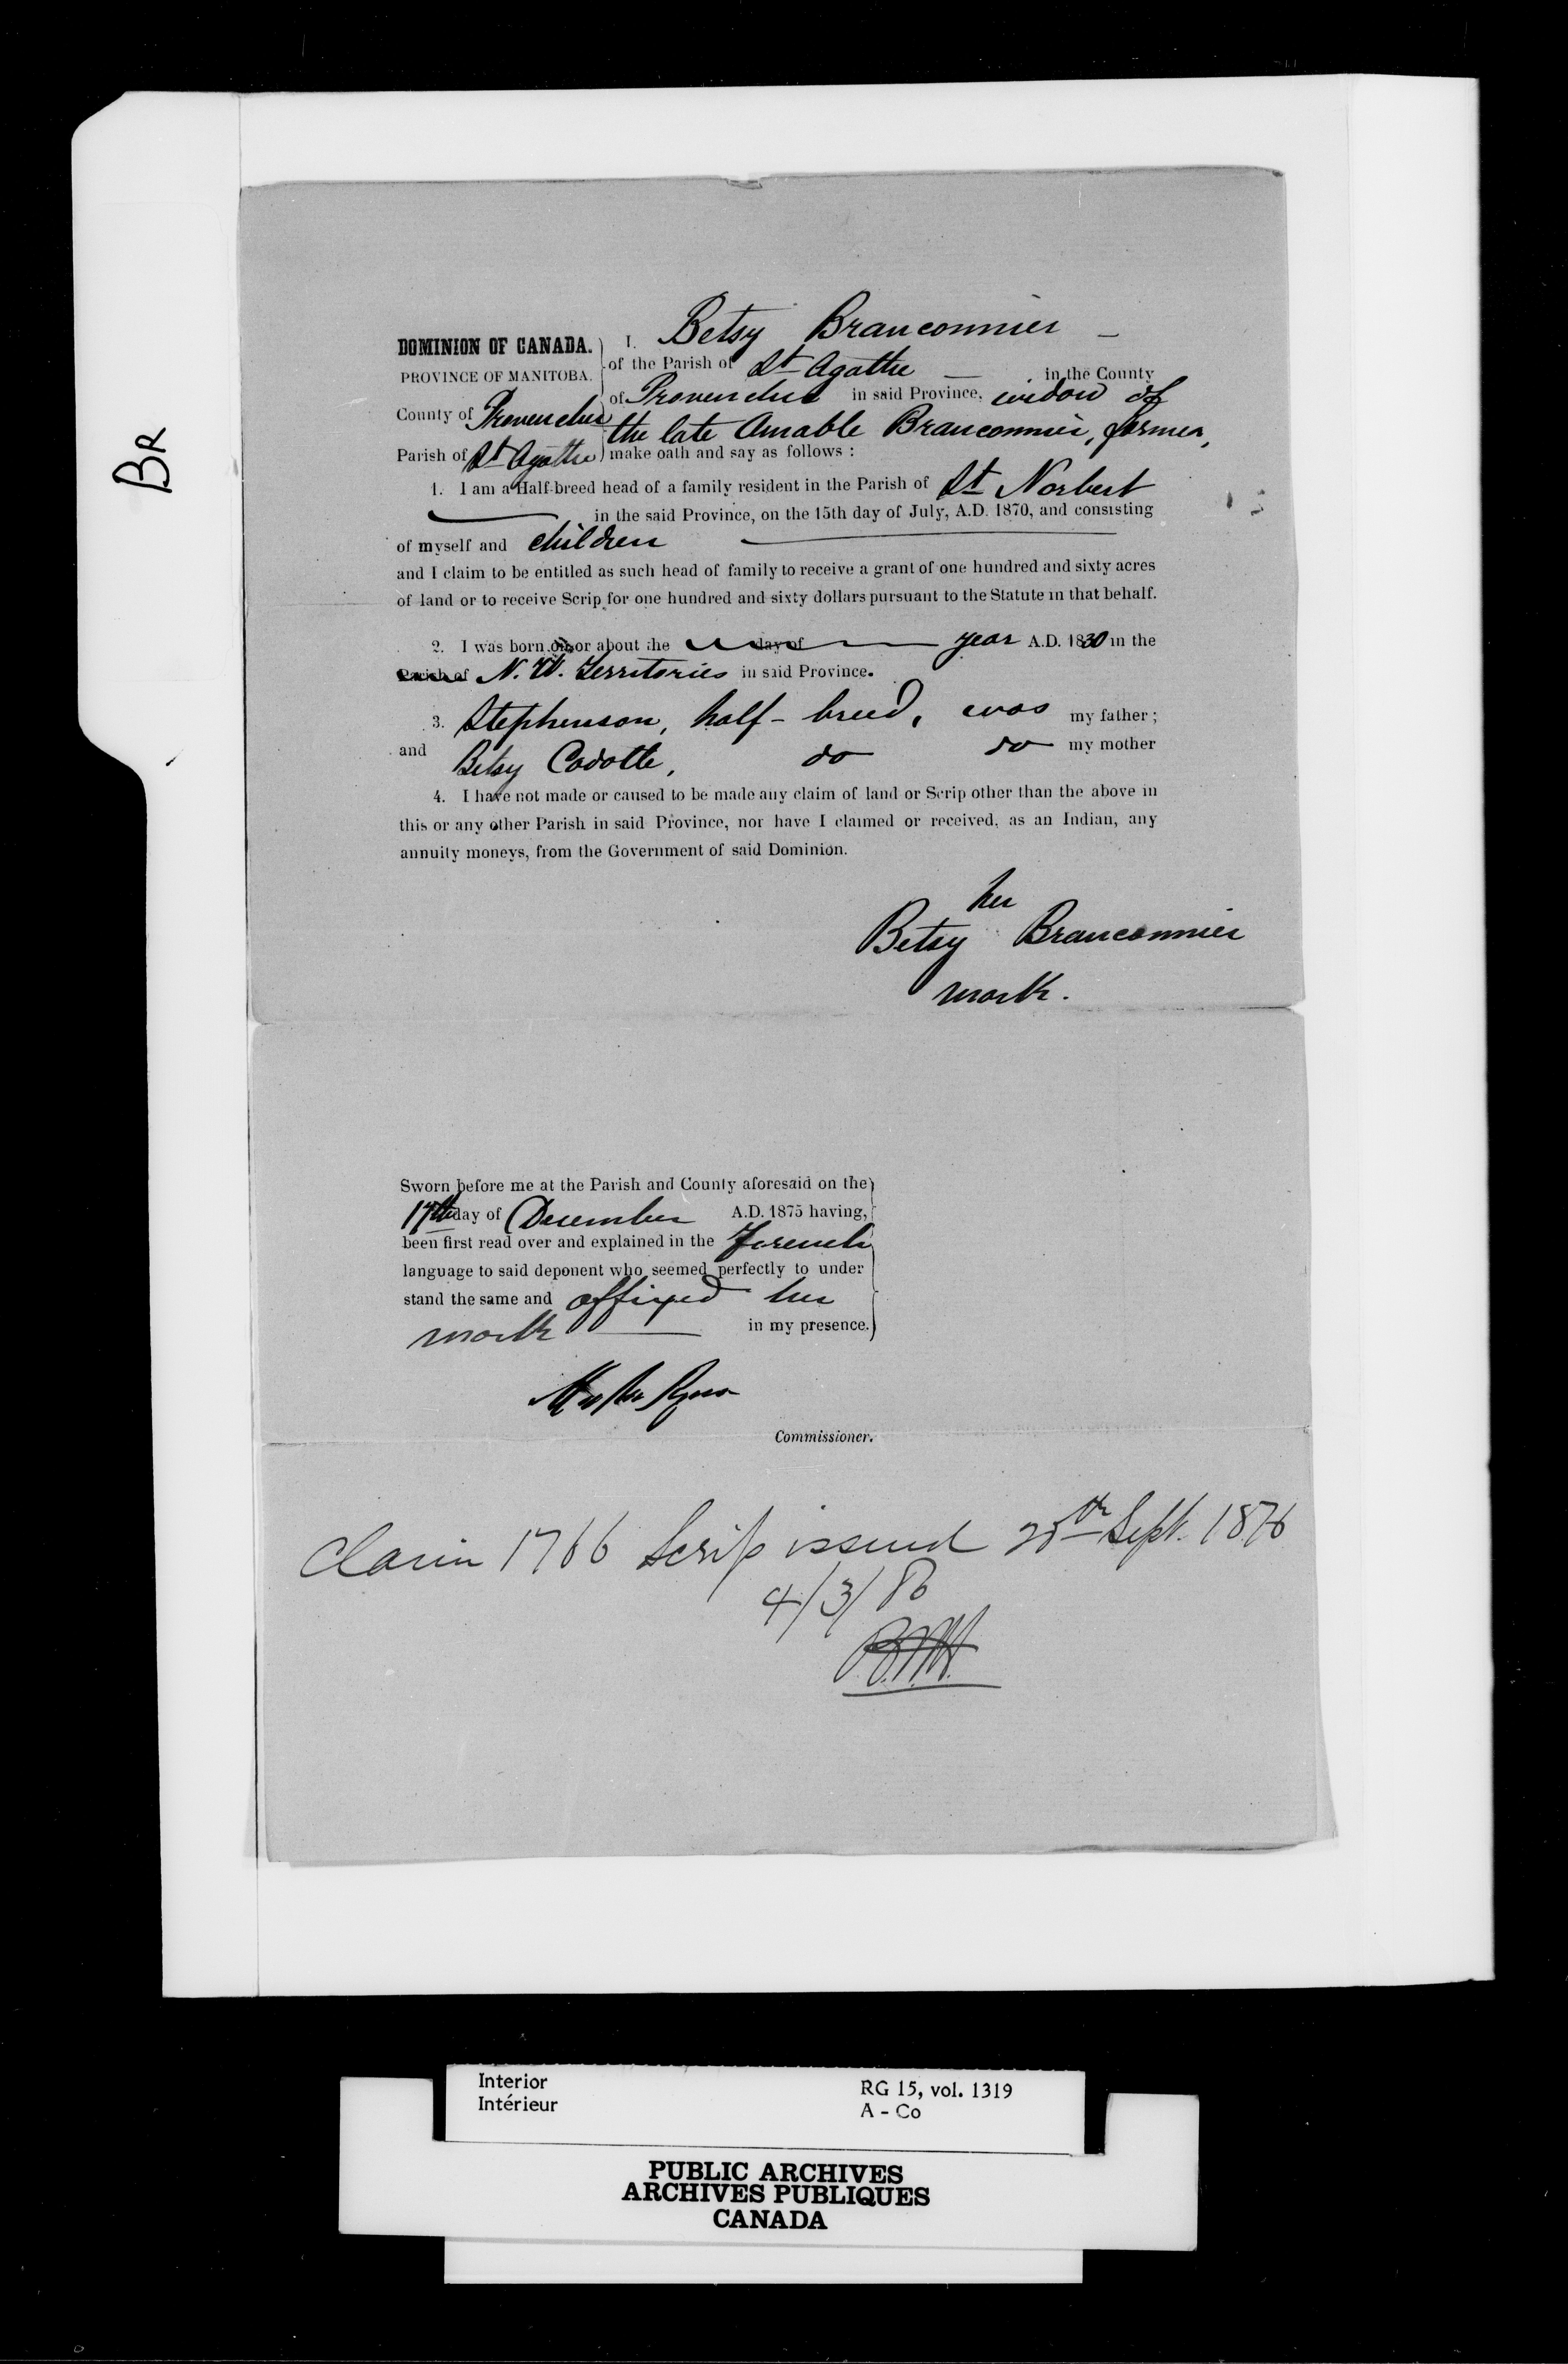 BR
DOMINION OF CANADA.
PROVINCE OF MANITOBA.
County of Provencher
Parish of St Agathe
I. Betsy Branconnier —
of the Parish of St Agathe — in the County
of Provencher in said Province, widow of
the late Amable Branconnier, farmer,
make oath and say as follows :
1. I am a Half-breed head of a family resident in the Parish of St Norbert
in the said Province, on the 15th day of July, A.D. 1870, and consisting
of myself and children
and I claim to be entitled as such head of family to receive a grant of one hundred and sixty acres
of land or to receive Scrip for one hundred and sixty dollars pursuant to the Statute in that behalf.
2. I was born on or about the day of year A.D. 1830 in the
Parish of N. W. Territories in said Province.
3. Stephenson, half-breed, was my father ;
and Betsy Cadotte, do do my mother
4. I have not made or caused to be made any claim of land or Scrip other than the above in
this or any other Parish in said Province, nor have I claimed or received, as an Indian, any
annuity moneys, from the Government of said Dominion.
her
Betsy Branconnier
mark.
Sworn before me at the Parish and County aforesaid on the
17th day of December A.D. 1875 having,
been first read over and explained in the French
language to said deponent who seemed perfectly to under
stand the same and affixed her
mark in my presence.
Commissioner.
Claim 1766 Scrip issued 25th Sept. 1876
4/3/80
Interior
Intérieur
RG 15, vol. 1319
A - Co
PUBLIC ARCHIVES
ARCHIVES PUBLIQUES
CANADA